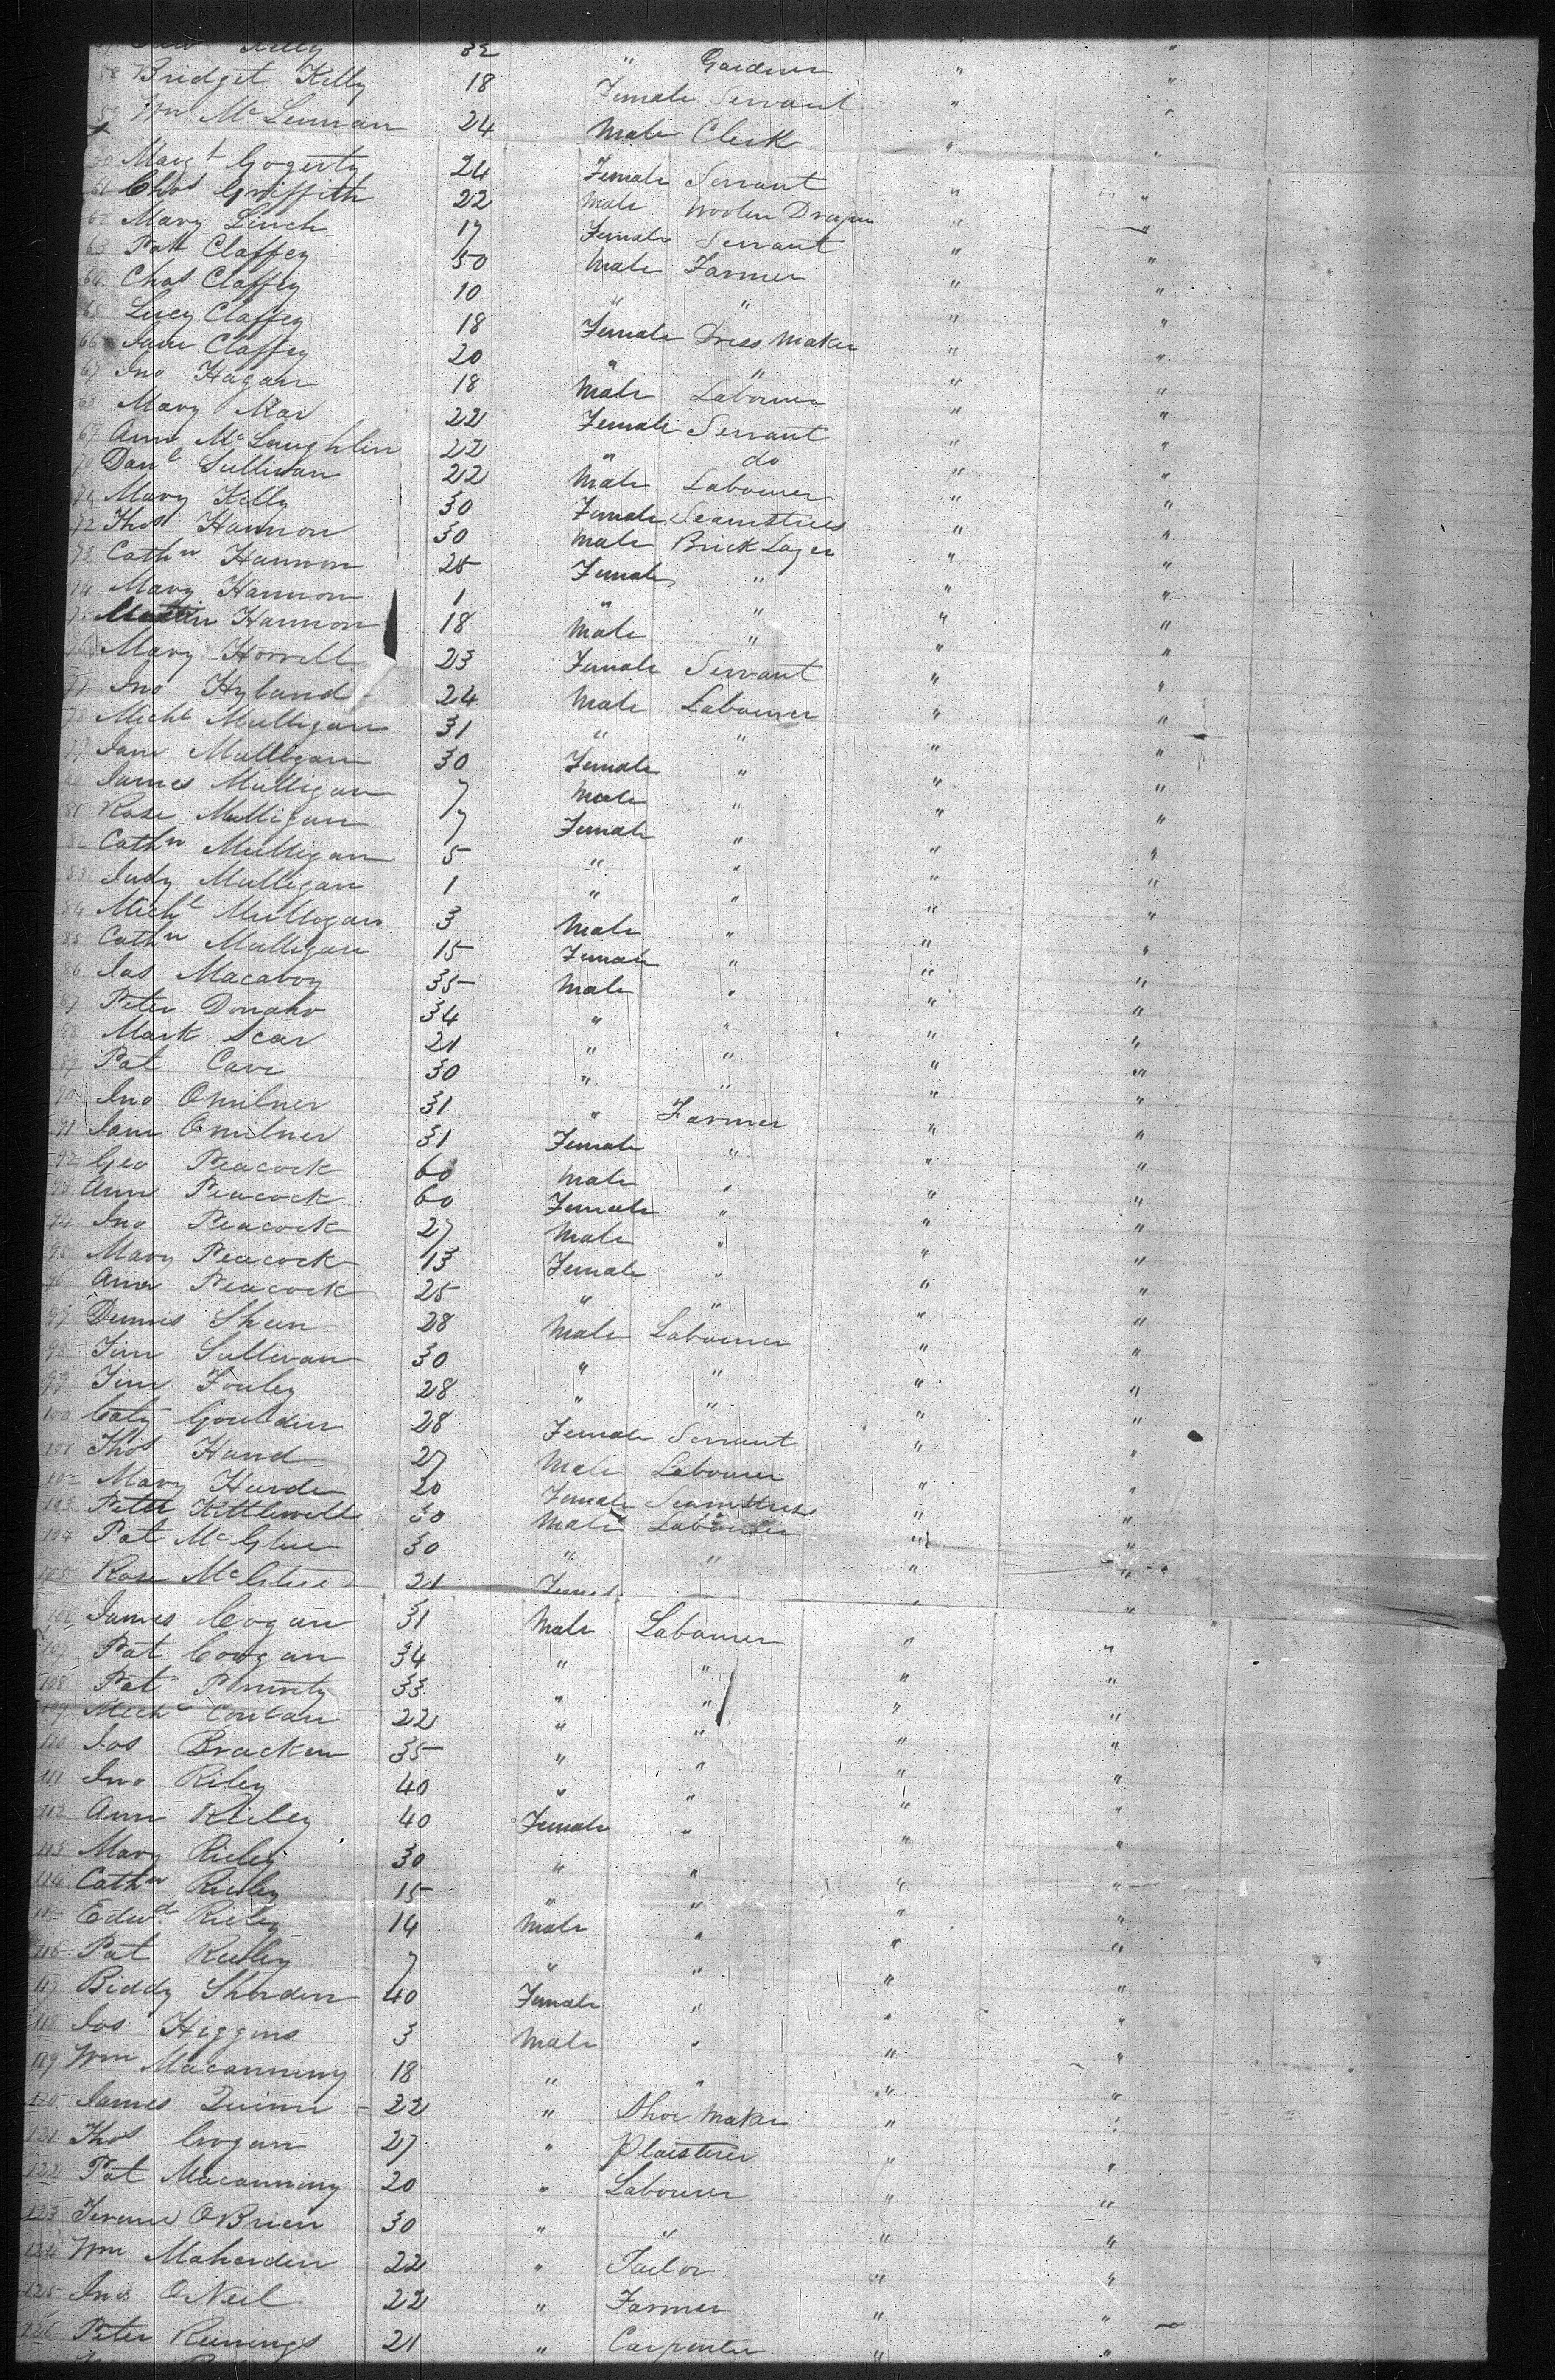 Kelly 32 " Gardner " "
58 Bridget Kelly 18 Female Servant " "
59 Wm McLennan 24 Male Clerk " "
60 Margt Gogerty 24 Female Servant " "
61 Chas Griffith 22 Male Woolen Draper " "
62 Mary Linch 17 Female Servant " "
63 Patt Claffey 50 Male Farmer " "
64 Chas Claffey 10 " " " "
65 Lucy Claffey 18 Female Dress Maker " "
66 Jane Claffey 20 " " " "
67 Jno Hagan 18 Male Labourer " "
68 Mary Mar 22 Female Servant " "
69 Ann McLaughlin 22 " do " "
70 Danl Sullivan 22 Male Labourer " "
71 Mary Kelly 30 Female Seamstress " "
72 Thos Hannon 30 Male Brick Layer " "
73 Cathn Hannon 25 Female " " "
74 Mary Hannon 1 " " " "
75 Martin Hannon 18 Male " " "
76 Mary Horrell 23 Female Servant " "
77 Jno Hyland 24 Male Labourer " "
78 Michl Mulligan 31 " " " "
79 Jane Mulligan 30 Female " " "
80 James Mulligan 7 Male " " "
81 Rose Mulligan 7 Female " " "
82 Cathn Mulligan 5 " " " "
83 Judy Mulligan 1 " " " "
84 Michl Mulligan 3 Male " " "
85 Cathn Mulligan 15 Female " " "
86 Jas Macavoy 35 Male " " "
87 Peter Donaho 34 " " " "
88 Mark Scar 21 " " " "
89 Pat Cave 30 " " " "
90 Jno Omilner 31 " Farmer " "
91 Jane Omilner 31 Female " " "
92 Geo Peacock 60 Male " " "
93 Ann Peacock 60 Female " " "
94 Jno Peacock 27 Male " " "
95 Mary Peacock 13 Female " " "
96 Ann Peacock 25 " " " "
97 Dennis Sheen 28 Male Labourer " "
98 Tim Sullivan 30 " " " "
99 Tim Fouley 28 " " " "
100 Caty Gouldin 28 Female Servant " "
101 Thos Hand 27 Male Labourer " "
102 Mary Hurde 20 Female Seamstress "  "
103 Peter Kittlewell 30 Male Labourer " "
104 Pat McGlue 30 " " " "
105 Rose McGlue 21 Female " "
106 James Cogan 31 Male Labourer " "
107 Pat Coogan 34 " " " "
108 Pat 33 " " " "
109 Michl Conlan 22 " " " "
110 Jos Bracken 35 " " " "
111 Jno Riley 40 " " " "
112 Ann Rieley 40 Female " " "
113 Mary Rieley 30 " " " "
114 Cathn Rieley 15 " " " "
115 Edwd Rieley 14 Male " " "
116 Pat Rieley 7 " " " "
117 Biddy Shorden 40 Female " " "
118 Jos Higgins 3 Male " " "
119 Wm Macanniny 18 " " " "
120 James Quinn 22 " Shoe Maker " "
121 Thos Cogan 27 " Plaisterer " "
122 Pat Macanniny 20 " Labourer " "
123 Terence OBrien 30 " " " "
124 Wm Maherden 22 " Tailor " "
125 Jno ONeil 22 " Farmer " "
126 Peter Reinings 21 " Carpenter " "